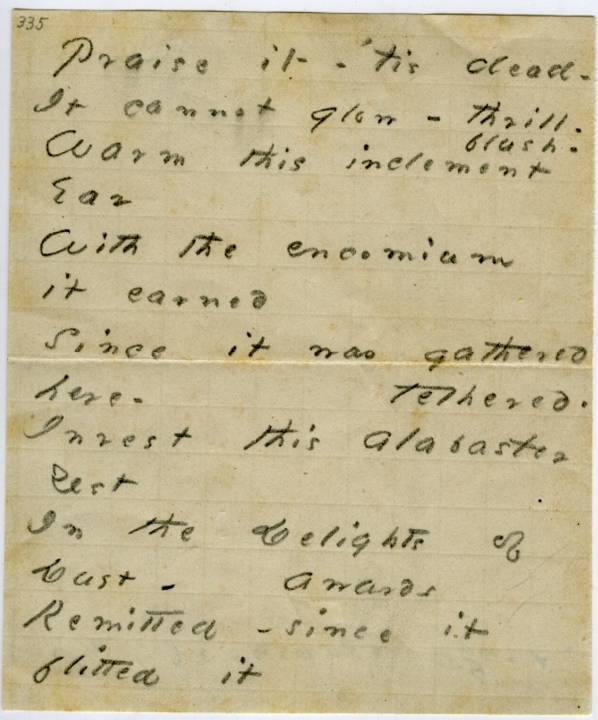 335
Praise it - 'tis dead -
It cannot glow - thrill.
flush.
Warm this inclement
Ear
With the encomium
it earned
Since it was gathered
here - tethered.
Invest this alabaster
Zest
In the Delights of
Dust - Awards
Remitted - since it
flitted it